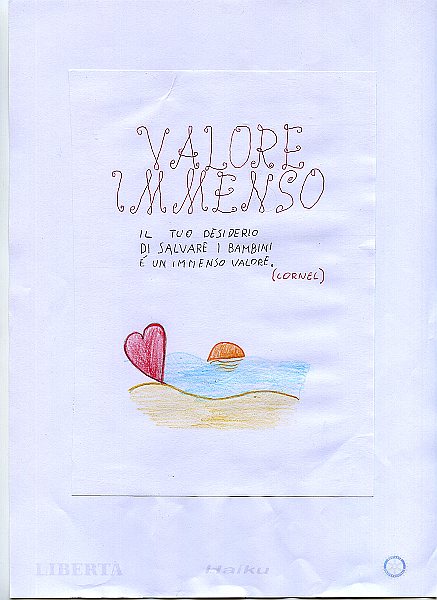 VALORE
IMMENSO
IL TUO DESIDERIO
DI SALVARE I BAMBINI
É UN IMMENSO VALORE.
(CORNEL)
LIBERTÀ Haiku